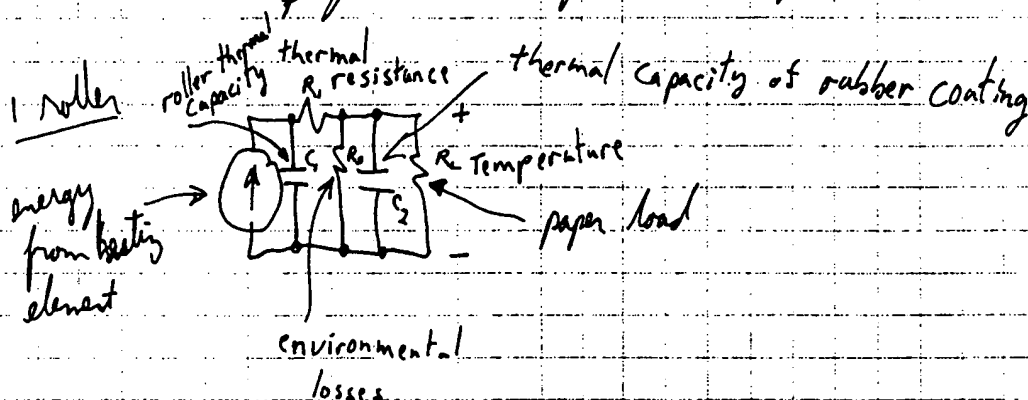 1 roller
roller thermal capacity
thermal resistance
R₁
thermal capacity of rubber coating
+
C₁
R₀
C₂
R_L Temperature
energy from heating element
paper load
−
environmental losses